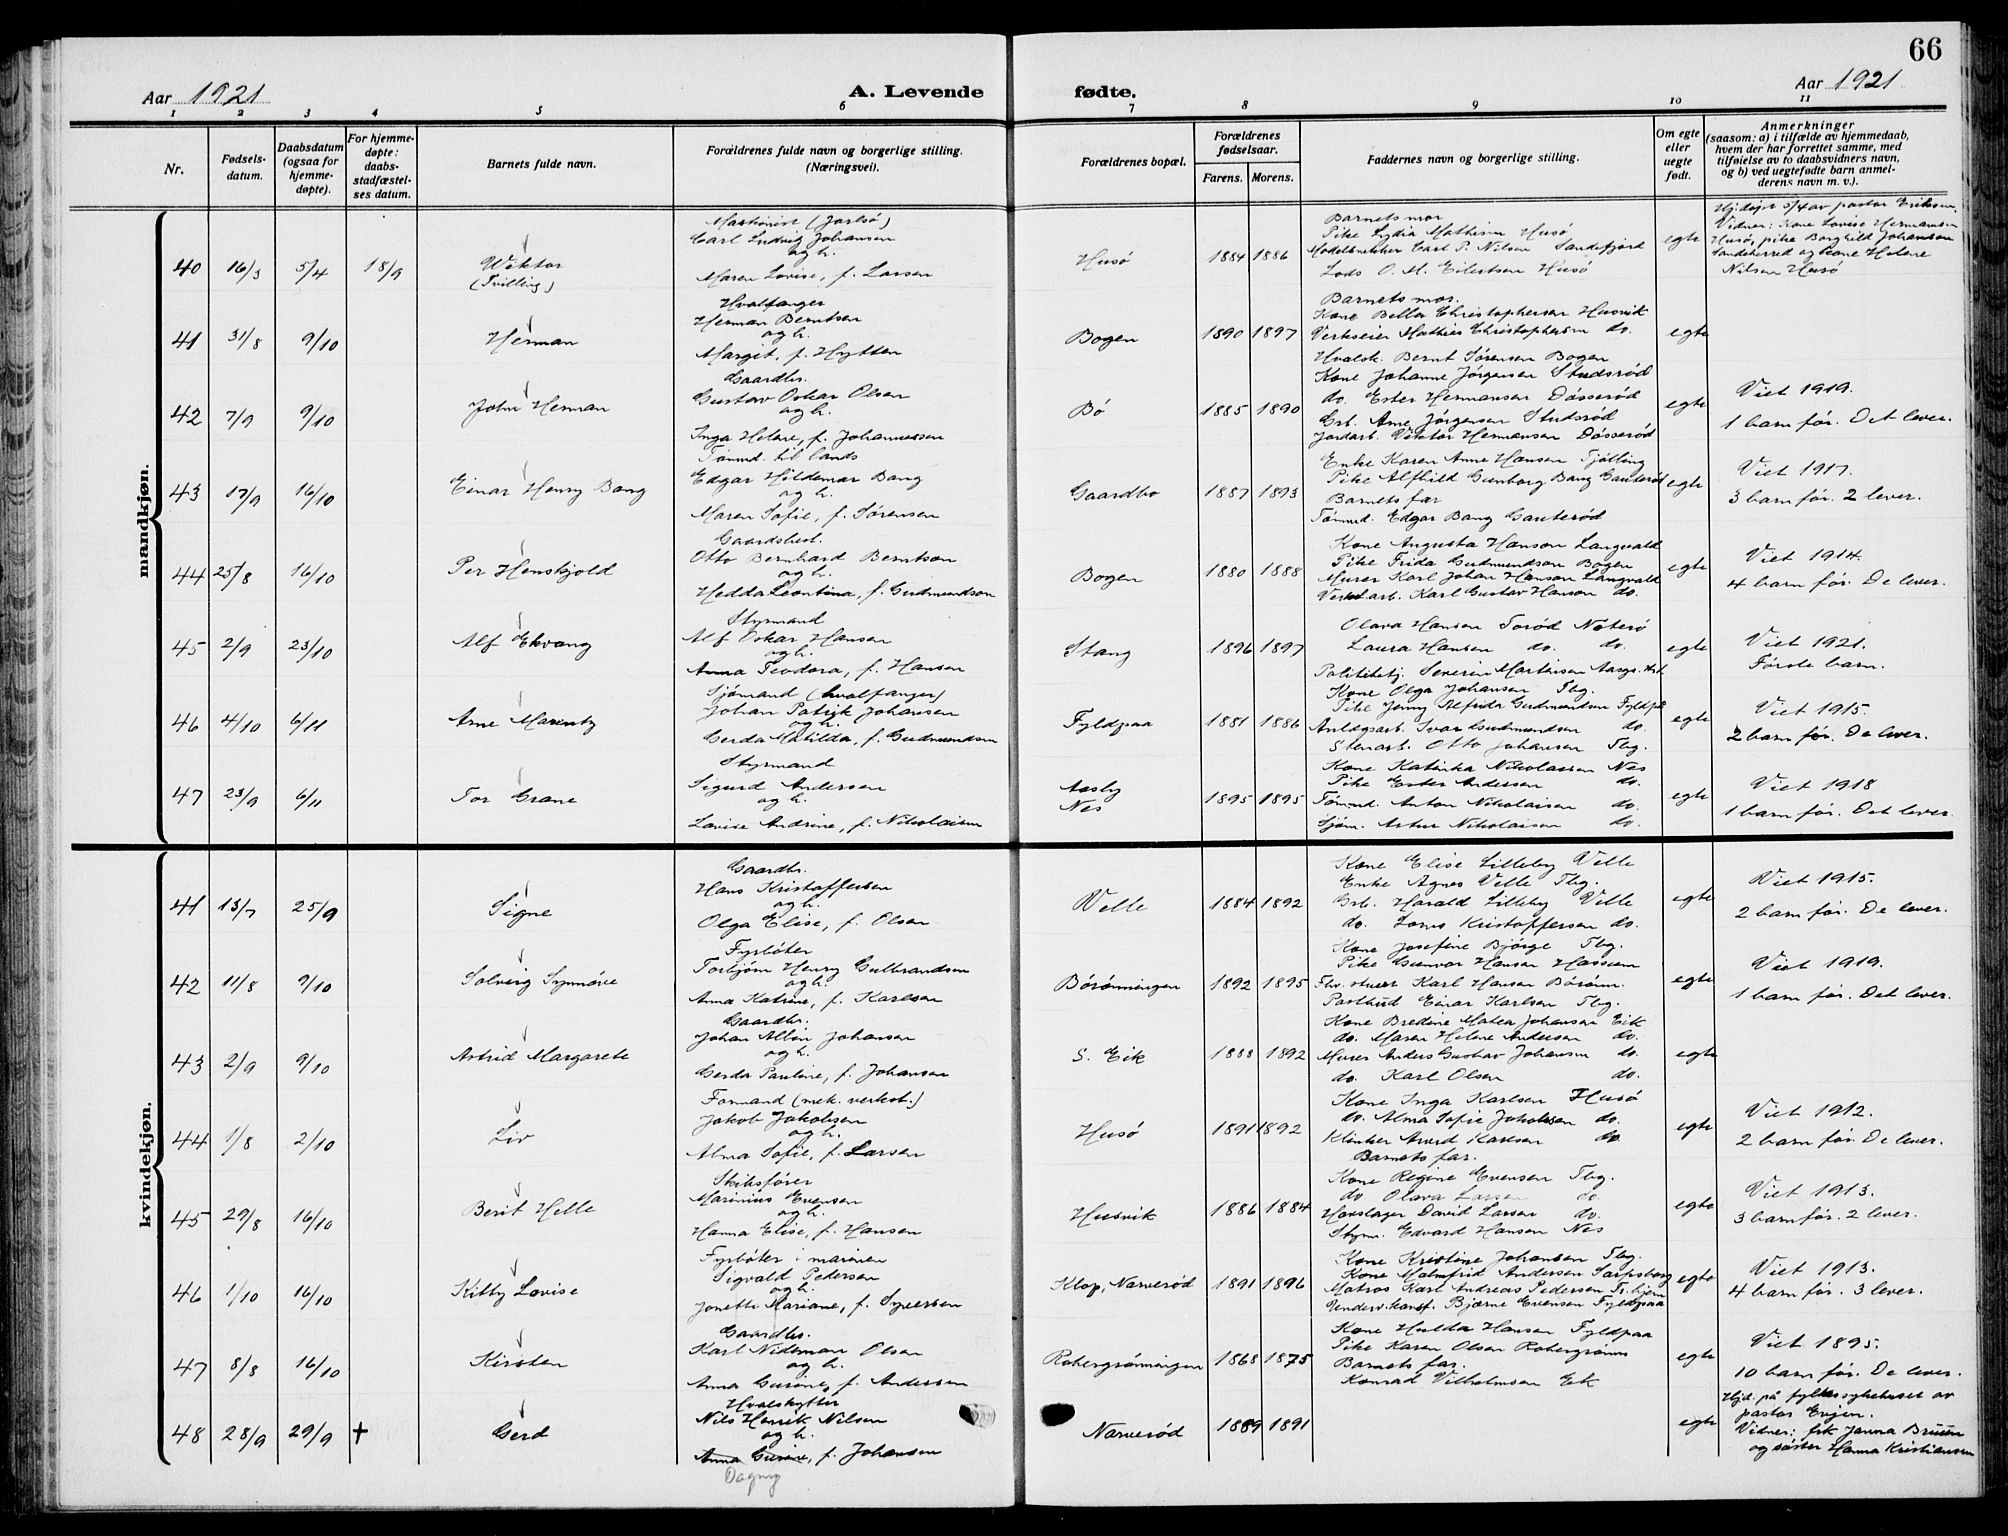 66
Aar 1921 A. Levende fødte. Aar 1921
1 2 3 4 5 6 7 8 9 10 11
Nr. Fødsels-datum. Daabsdatum (ogsaa for hjemme-døpte). For hjemme-døpte: daabs-stadfæstel-ses datum. Barnets fulde navn. Forældrenes fulde navn og borgerlige stilling. (Næringsvei). Forældrenes bopæl. Forældrenes fødselsaar. Farens. Morens. Faddernes navn og borgerlige stilling. Om egte eller uegte født. Anmerkninger (saasom: a) i tilfælde av hjemmedaab, hvem der har forrettet samme, med tilføielse av to daabsvidners navn, og b) ved uegtefødte barn anmel-derens navn m. v.).
mandkjøn.
Maskinist (Jarlsø)
Carl Ludvig Johansen
og h.
40 16/3 5/4 18/9 Viktor (Tvilling)
Maren Lovise, f. Larsen
Husø 1884 1886
Barnets mor
Pike Lydia Mathisen Husø
Modelsnekker Carl P. Nilsen Sandefjord
Lods O. M. Eilertsen Husø
egte
Hj.døpt 5/4 av pastor Eriksen.
Vidner: Kone Lovise Hermansen
Husø, pike Borghild Johansen
Sandeherred og kone Helene
Nilsen Husø
Hvalfanger
Herman Berntsen
og h.
41 31/8 9/10 Herman
Margit, f. Hytten
Bogen 1890 1897
Barnets mor.
Kone Bella Christophersen Husvik
Verkseier Mathies Christophersen do.
Hvalsk. Bernt Sørensen Bogen
egte
Gaardbr.
Gustav Oskar Olsen
og h.
42 7/9 9/10 John Herman
Inga Helene, f. Johannessen
Bø 1885 1890
Kone Johanne Jørgensen Studsrød
do. Ester Hermansen Døsserød
Grb. Arne Jørgensen Studsrød
Jordarb. Viktor Hermansen Døsserød
egte
Viet 1919.
1 barn før. Det lever.
Tømmd. til lands
Edgar Hildemar Bang
og h.
43 17/9 16/10 Einar Henry Bang
Maren Sofie, f. Sørensen
Gaardbo 1887 1893
Enke Karen Anne Hansen Tjølling
Pike Alfhild Gunborg Bang Gauterød
Barnets far
Tømmd. Edgar Bang Gauterød
egte
Viet 1917.
3 barn før. 2 lever.
Gaardsbest.
Otto Bernhard Berntsen
og h.
44 25/8 16/10 Per Henskjold
Hedda Leontina, f. Gudmundson
Bogen 1880 1888
Kone Augusta Hanson Langvald
Pike Frida Gudmundson Bogen
Murer Karl Johan Hanson Langvald
Verkst.arb. Karl Gustav Hanson do.
egte
Viet 1914.
4 barn før. De lever.
Styrmand
Alf Oskar Hansen
og h.
45 2/9 23/10 Alf Ekvang
Anna Teodora, f. Hansen
Stang 1896 1897
Olava Hansen Torød Nøterø
Laura Hansen do. do.
Politibetj. Severin Martinsen
egte
Viet 1921.
Første barn.
Sjømand (hvalfanger)
Johan Patrik Johansen
og h.
46 4/10 6/11 Arne
Gerda Matilda, f. Gudmundsen
Fyldpaa 1881 1886
Kone Olga Johansen Tbg.
Pike Jenny Alfrida Gudmundsen Fyldpaa
Anlægsarb. Ivar Gudmundsen do.
Stenarb. Otto Johansen Tbg.
egte
Viet 1915.
2 barn før. De lever.
Styrmand
Sigurd Andersen
og h.
47 23/9 6/11 Tor Grane
Lovise Andrine, f. Nikolaisen
Aasly Nes 1895 1895
Kone Katinka Nikolaisen Nes
Pike Ester Andersen do.
Tømmd. Anton Nikolaisen do.
Sjøm. Artur Nikolaisen do.
egte
Viet 1918
1 barn før. Det lever.
kvindekjøn.
Gaardbr.
Hans Kristoffersen
og h.
41 13/7 25/9 Signe
Olga Elise, f. Olsen
Velle 1884 1892
Kone Elise Lilleby Velle
Enke Agnes Velle Tbg.
Grb. Harald Lilleby Velle
do. Lorns Kristoffersen do.
egte
Viet 1915.
2 barn før. De lever.
Fyrbøter
Torbjørn Henry Gulbrandsen
og h.
42 11/8 9/10 Solveig Synnøve
Anna Katrine, f. Karlsen
Børønningen 1892 1895
Kone Josefine Bjørge Tbg.
Pike Gunvor Hansen Hassum
Karl Hansen Børønn.
Postbud Einar Karlsen Tbg.
egte
Viet 1919.
1 barn før. Det lever.
Gaardbr.
Johan Albin Johansen
og h.
43 2/9 9/10 Astrid Margarete
Gerda Pauline, f. Johansen
S. Eik 1888 1892
Kone Bredine Matea Johansen Eik
do. Maren Helene Andersen do.
Murer Anders Gustav Johansen do.
do. Karl Olsen do.
egte
Formand (mek. verkst.)
Jakob Jakobsen
og h.
44 1/8 2/10 Liv
Alma Sofie, f. Larsen
Husø 1891 1892
Kone Inga Karlsen Husø
do. Alma Sofie Jakobsen do.
Klinker Arvid Karlsen do.
Barnets far.
egte
Viet 1912.
2 barn før. De lever.
Skibsfører
Marinius Evensen
og h.
45 29/8 16/10 Berit Helle
Hanna Elise, f. Hansen
Husvik 1886 1884
Kone Regine Evensen Tbg.
do Olava Larsen do.
Havslager David Larsen do.
Styrm. Edvard Hansen Nes
egte
Viet 1913.
3 barn før. 2 lever.
Fyrbøter i marinen
Sigvald Pedersen
og h.
46 1/10 16/10 Kitty Lovise
Jonette Mariane, f. Syversen
Klop, Narverød 1891 1896
Kone Kristine Johansen Tbg.
Kone Malmfrid Andersen Sarpsborg
Matros Karl Andreas Pedersen Tr.hjem
Bjarne Evensen Fyldpaa
egte
Viet 1913.
4 barn før. 3 lever.
Gaardbr.
Karl Nideman Olsen
og h.
47 8/8 16/10 Kirsten
Anna Gurine, f. Andersen
Robergrønningen 1868 1875
Kone Hulda Hansen Fyldpaa
Pike Karen Olsen Robergrønn
Barnets far.
Konrad Vilhelmsen Eik
egte
Viet 1895.
10 barn før. De lever.
Hvalskytter
Nils Henrik Nilsen
og h.
48 28/9 29/9 † Gerd
Anna Gurine, f. Johansen
Dagny
Narverød 1889 1891
egte
Hjd. på fylkessykehuset av
pastor Evjen.
Vidner: frk Janna Bruun
og søster Hanna Kristiansen